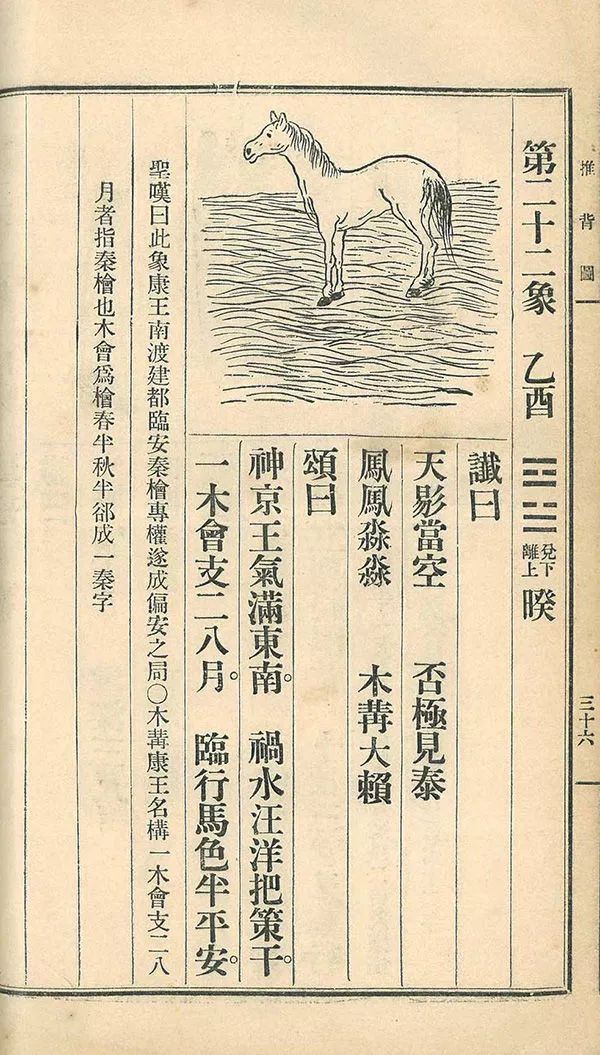 推背圖
三十六
第二十二象 乙酉 ☲☱ 兌下
離上 暌
讖曰
天影當空 否極見泰
鳳鳳淼淼 木冓大賴
頌曰
神京王氣滿東南。 禍水汪洋把策干。
一木會支二八月。 臨行馬色半平安。
聖嘆曰此象康王南渡建都臨安秦檜專權遂成偏安之局○木冓康王名構一木會支二八
月者指秦檜也木會爲檜春半秋半郤成一秦字